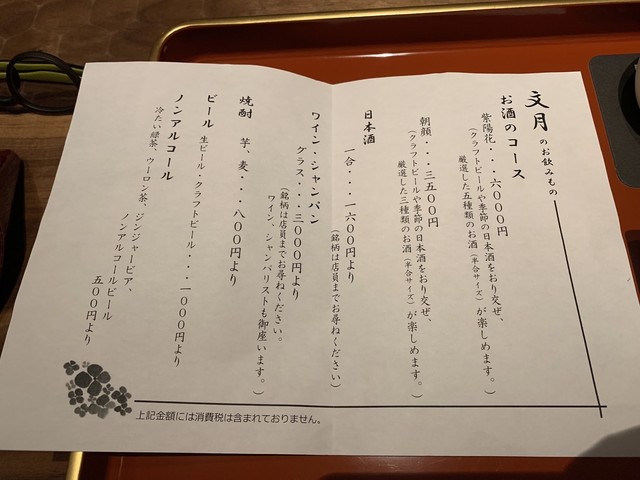 文月のお飲みもの
お酒のコース
紫陽花・・・六000円
(クラフトビールや季節の日本酒をおり交ぜ、
厳選した五種類のお酒(半合サイズ)が楽しめます。)
朝顔・・・三五00円
(クラフトビールや季節の日本酒をおり交ぜ、
厳選した三種類のお酒(半合サイズ)が楽しめます。)
日本酒
一合・・・一六00円より
(銘柄は店員までお尋ねください)
ワイン・シャンパン
グラス・・・三000円より
(銘柄は店員までお尋ねください。
ワイン、シャンパリストも御座います。)
焼酎 芋、麦・・・八00円より
ビール 生ビール・クラフトビール・・・一000円より
ノンアルコール
冷たい緑茶、ウーロン茶、ジンジャーピア、
ノンアルコールビール
五00円より
上記金額には消費税は含まれておりません。